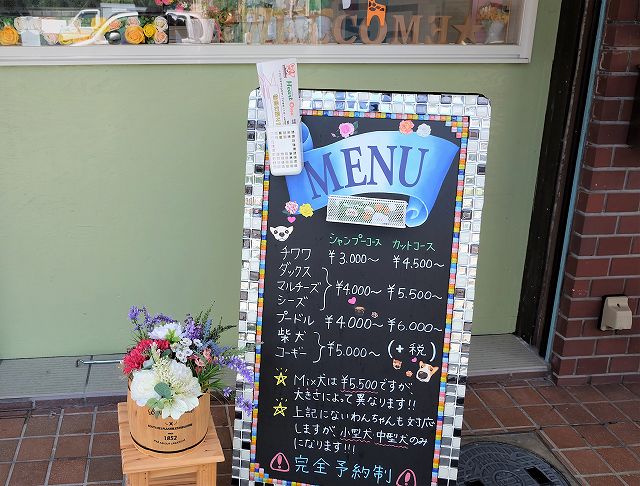 WELCOME★
MENU
シャンプーコース カットコース
チワワ ¥3.000～ ¥4.500～
ダックス
マルチーズ ¥4.000～ ¥5.500～
シーズ
プードル ¥4.000～ ¥6.000～
柴犬
コーギー ¥5.000～ (+税)
Mix犬は¥5.500ですが
大きさによって異なります!!
上記にないわんちゃんも対応
しますが、小型犬 中型犬のみ
になります!!!
完全予約制
1852